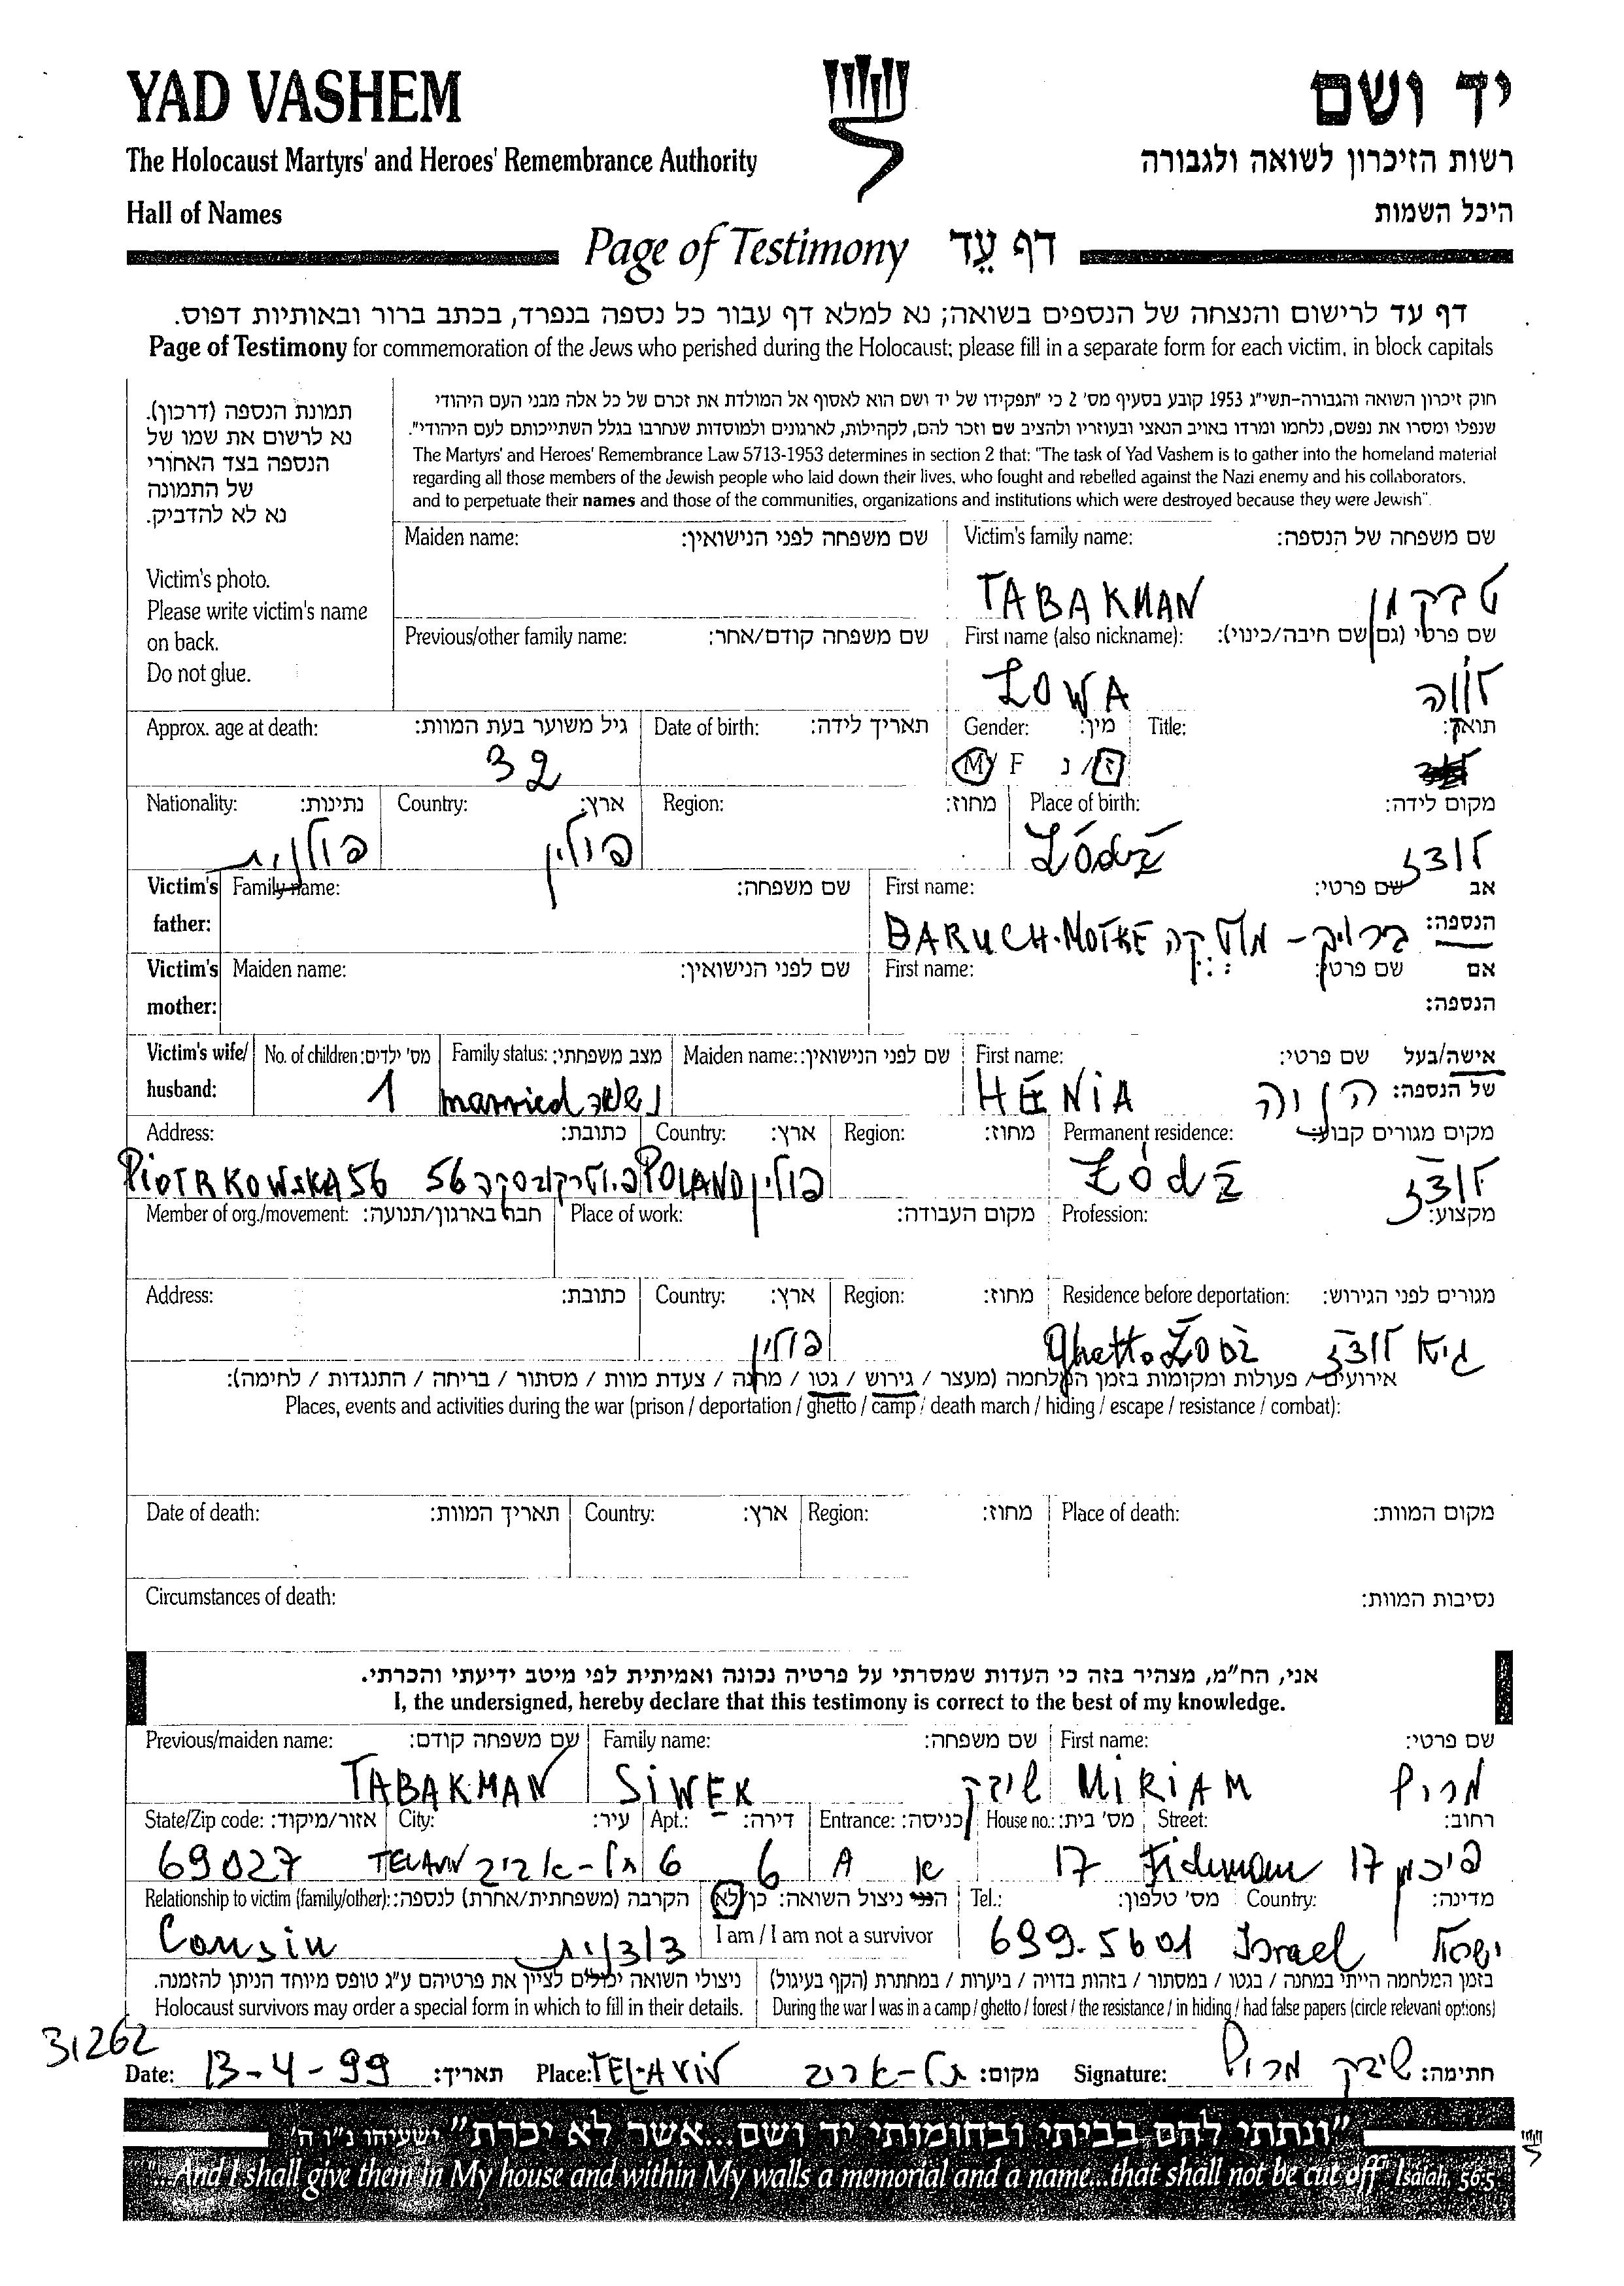 YAD VASHEM יד ושם
The Holocaust Martyrs' and Heroes' Remembrance Authority רשות הזיכרון לשואה ולגבורה
Hall of Names היכל השמות
Page of Testimony דף עֵד
דף עד לרישום והנצחה של הנספים בשואה; נא למלא דף עבור כל נספה בנפרד, בכתב ברור ובאותיות דפוס.
Page of Testimony for commemoration of the Jews who perished during the Holocaust; please fill in a separate form for each victim, in block capitals
תמונת הנספה (דרכון).
נא לרשום את שמו של
הנספה בצד האחורי
של התמונה
נא לא להדביק.
Victim's photo.
Please write victim's name
on back.
Do not glue.
חוק זיכרון השואה והגבורה-תשי"ג 1953 קובע בסעיף מס' 2 כי "תפקידו של יד ושם הוא לאסוף אל המולדת את זכרם של כל אלה מבני העם היהודי
שנפלו ומסרו את נפשם, נלחמו ומרדו באויב הנאצי ובעוזריו ולהציב שם וזכר להם, לקהילות, לארגונים ולמוסדות שנחרבו בגלל השתייכותם לעם היהודי".
The Martyrs' and Heroes' Remembrance Law 5713-1953 determines in section 2 that: "The task of Yad Vashem is to gather into the homeland material
regarding all those members of the Jewish people who laid down their lives, who fought and rebelled against the Nazi enemy and his collaborators,
and to perpetuate their names and those of the communities, organizations and institutions which were destroyed because they were Jewish".
Maiden name: שם משפחה לפני הנישואין: Victim's family name: שם משפחה של הנספה:
TABAKMAN טבקמן
Previous/other family name: שם משפחה קודם/אחר: First name (also nickname): שם פרטי (גם שם חיבה/כינוי):
LOWA לווה
Approx. age at death: גיל משוער בעת המוות: Date of birth: תאריך לידה: Gender: מין: Title: תואר:
32 M F נ / ז
Nationality: נתינות: Country: ארץ: Region: מחוז: Place of birth: מקום לידה:
פולנית פולין Łódź לודז
Victim's father: Family name: שם משפחה: First name: שם פרטי: אב הנספה:
BARUCH-MOTKE ברוך - מוטקה
Victim's mother: Maiden name: שם לפני הנישואין: First name: שם פרטי: אם הנספה:
Victim's wife/husband: No. of children: מס' ילדים: Family status: מצב משפחתי: Maiden name: שם לפני הנישואין: First name: שם פרטי: אישה/בעל של הנספה:
1 married נשוי HENIA הניה
Address: כתובת: Country: ארץ: Region: מחוז: Permanent residence: מקום מגורים קבוע:
PIOTRKOWSKA 56 פיוטרקובסקה 56 POLAND פולין Łódź לודז
Member of org./movement: חבר בארגון/תנועה: Place of work: מקום העבודה: Profession: מקצוע:
Address: כתובת: Country: ארץ: Region: מחוז: Residence before deportation: מגורים לפני הגירוש:
פולין Ghetto Łódź גיטו לודז
אירועים / פעולות ומקומות בזמן המלחמה (מעצר / גירוש / גטו / מחנה / צעדת מוות / מסתור / בריחה / התנגדות / לחימה):
Places, events and activities during the war (prison / deportation / ghetto / camp / death march / hiding / escape / resistance / combat):
Date of death: תאריך המוות: Country: ארץ: Region: מחוז: Place of death: מקום המוות:
Circumstances of death: נסיבות המוות:
אני, הח"מ, מצהיר בזה כי העדות שמסרתי על פרטיה נכונה ואמיתית לפי מיטב ידיעתי והכרתי.
I, the undersigned, hereby declare that this testimony is correct to the best of my knowledge.
Previous/maiden name: שם משפחה קודם: Family name: שם משפחה: First name: שם פרטי:
TABAKMAN SIWEK שיבק MIRIAM מרים
State/Zip code: אזור/מיקוד: City: עיר: Apt.: דירה: Entrance: כניסה: House no.: מס' בית: Street: רחוב:
69027 TEL AVIV תל-אביב 6 6 A א 17 Fichman פיכמן 17
Relationship to victim (family/other): הקרבה (משפחתית/אחרת) לנספה: הנני ניצול השואה: כן/לא Tel.: מס' טלפון: Country: מדינה:
I am / I am not a survivor
Cousin בת דוד 699-5601 Israel ישראל
ניצולי השואה יכולים לציין את פרטיהם ע"ג טופס מיוחד הניתן להזמנה. בזמן המלחמה הייתי במחנה / בגטו / במסתור / בזהות בדויה / ביערות / במחתרת (הקף בעיגול)
Holocaust survivors may order a special form in which to fill in their details. During the war I was in a camp / ghetto / forest / the resistance / in hiding / had false papers (circle relevant options)
31262
Date: 13-4-99 תאריך: Place: TEL-AVIV תל-אביב מקום: Signature: שיבק מרים חתימה:
"ונתתי להם בביתי ובחומותי יד ושם...אשר לא יכרת" ישעיהו נ"ו ה'
"...And I shall give them in My house and within My walls a memorial and a name...that shall not be cut off" Isaiah, 56:5